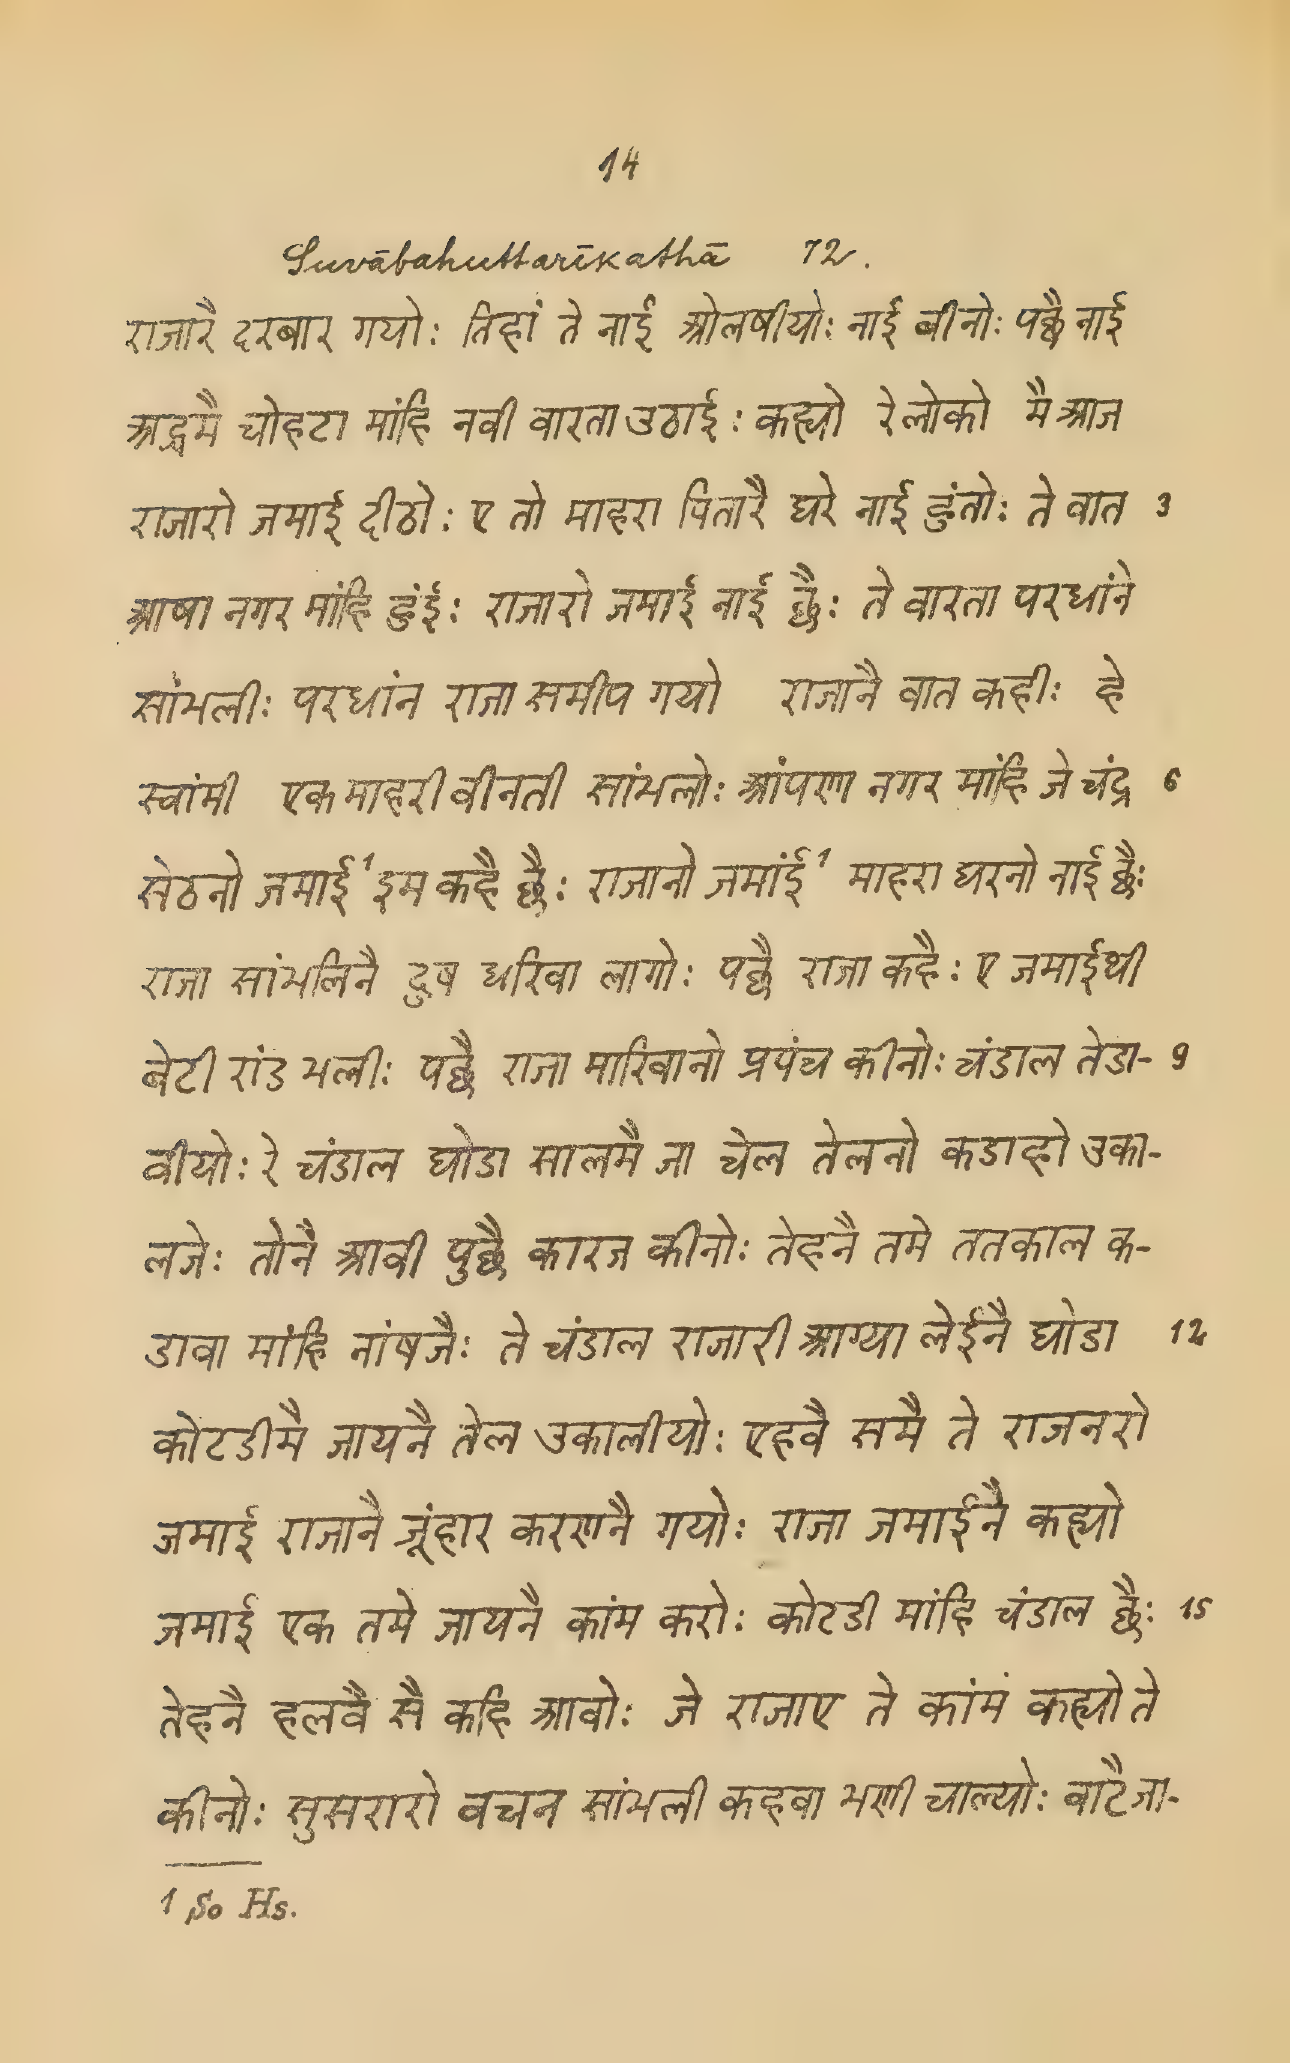 14
Suvābahuttarīkathā 72.
राजारै दरबार गयोः तिहां ते नाई ओलषीयोः नाई बीनोः पछै नाई
आद्रमै चोहटा मांहि नवी वारता उठाईः कह्यो रे लोको मै आज
राजारो जमाई दीठोः ए तो माहरा पितारै घरे नाई हुंतोः ते वात 3
आषा नगर मांहि हुंईः राजारो जमाई नाई छैः ते वारता परधांने
सांभलीः परधांन राजा समीप गयो राजानै वात कहीः हे
स्वांमी एक माहरी वीनती सांभलोः आंपणा नगर मांहि जे चंद्र 6
सेठनो जमाई¹ इम कहै छैः राजानो जमांई¹ माहरा घरनो नाई छैः
राजा सांभलिनै दुष धरिवा लागोः पछै राजा कहैः ए जमाईथी
बेटी रांड भलीः पछै राजा मारिवानो प्रपंच कीनोः चंडाल तेडा- 9
वीयोः रे चंडाल घोडा सालमै जा चेल तेलनो कडाहो उका-
लजेः तोनै आवी पुछै कारज कीनोः तेहनै तमे ततकाल क-
डावा मांहि नांषजैः ते चंडाल राजारी आग्या लेईनै घोडा 12
कोटडीमै जायनै तेल उकालीयोः एहवै समै ते राजनरो
जमाई राजानै जूंहार करणनै गयोः राजा जमाईनै कह्यो
जमाई एक तमे जायनै कांम करोः कोटडी मांहि चंडाल छैः 15
तेहनै हलवै सै कहि आवोः जे राजाए ते कांम कह्यो ते
कीनोः सुसरारो वचन सांभली कहवा भणी चाल्योः वाटै जा-
1 So Hs.